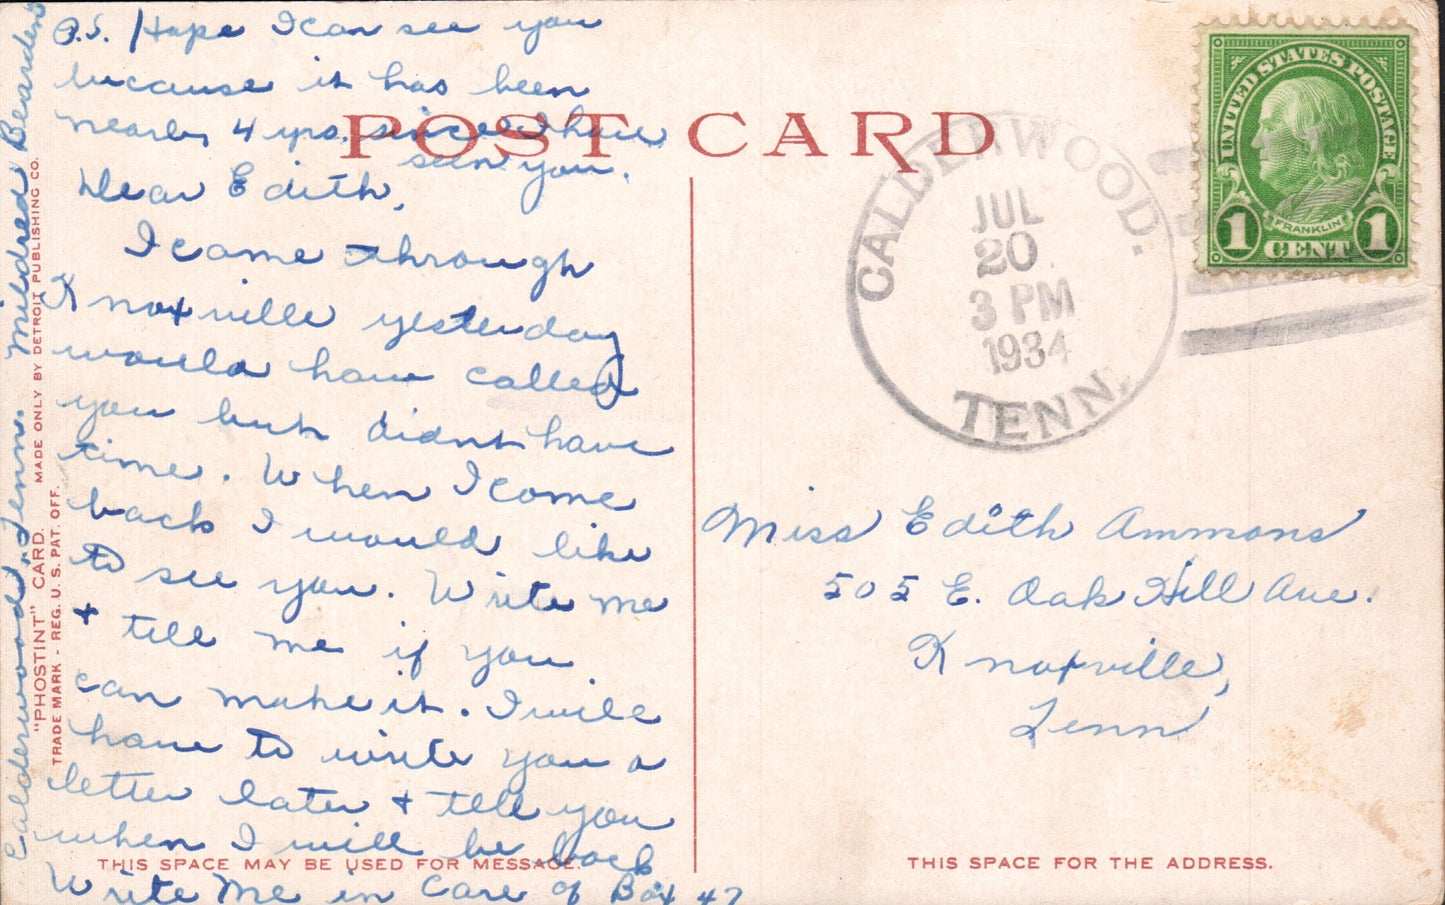 P.S. Hope I can see you
because it has been
nearly 4 yrs. since I have
seen you.
Dear Edith,
I came through
Knoxville yesterday
would have called
you but didnt have
time. When I come
back I would like
to see you. Write me
+ tell me if you
can make it. I will
have to write you a
letter later + tell you
when I will be back
Write Me in Care of Box 47
Calderwood, Tenn. Mildred Bearden
"PHOSTINT" CARD. MADE ONLY BY DETROIT PUBLISHING CO.
TRADE MARK - REG. U. S. PAT. OFF.
THIS SPACE MAY BE USED FOR MESSAGE.
POST CARD
CALDERWOOD.
JUL
20
3 PM
1934
TENN.
UNITED STATES POSTAGE
FRANKLIN
1 CENT 1
Miss Edith Ammons
505 E. Oak Hill Ave.
Knoxville,
Tenn
THIS SPACE FOR THE ADDRESS.